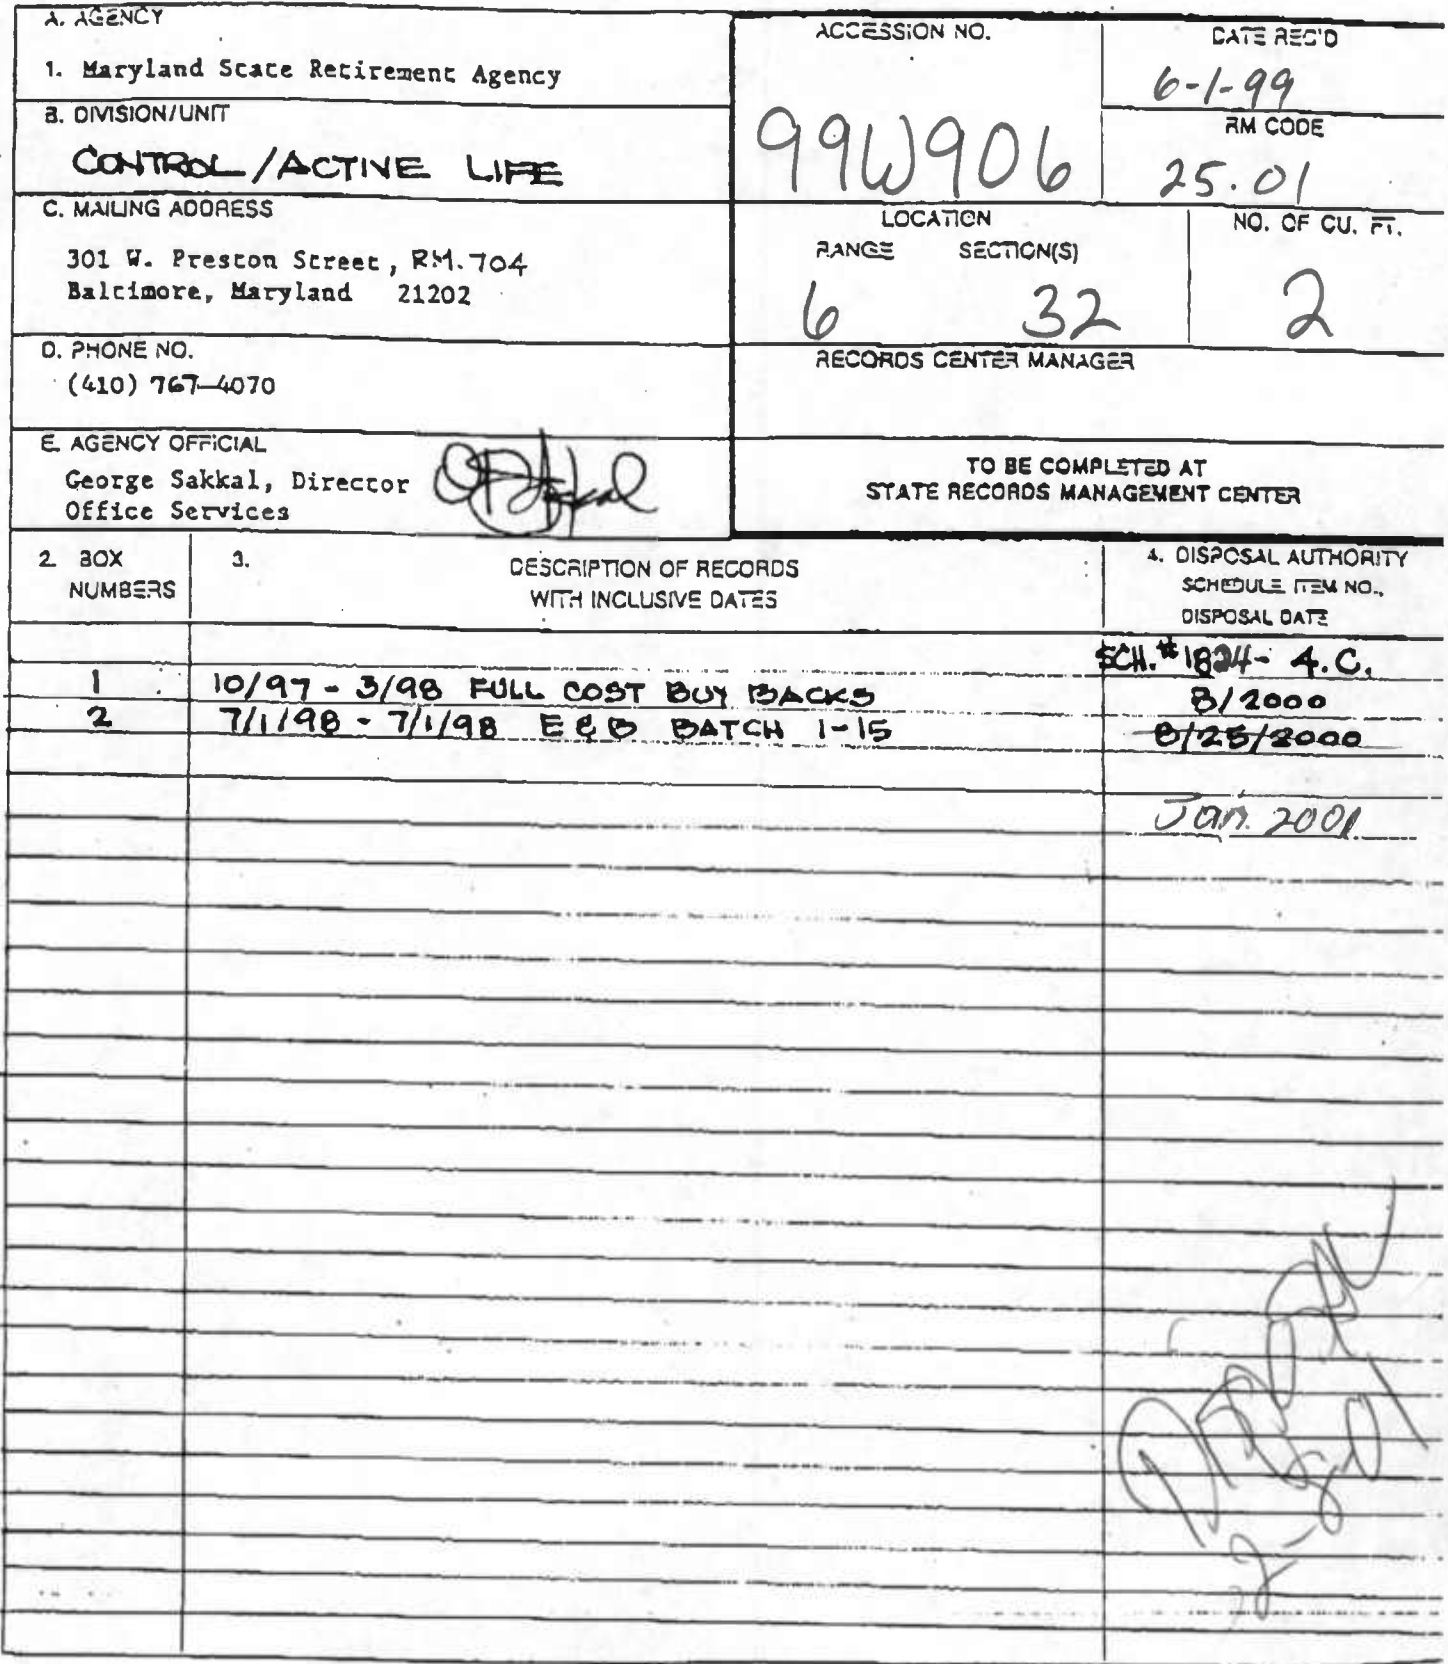 A. AGENCY
1. Maryland State Retirement Agency
B. DIVISION/UNIT
CONTROL/ACTIVE LIFE
C. MAILING ADDRESS
301 W. Preston Street, RM. 704
Baltimore, Maryland 21202
D. PHONE NO.
(410) 767-4070
E. AGENCY OFFICIAL
George Sakkal, Director
Office Services
ACCESSION NO.
99W906
DATE REC'D
6-1-99
RM CODE
25.01
LOCATION
RANGE SECTION(S)
6 32
NO. OF CU. FT.
2
RECORDS CENTER MANAGER
TO BE COMPLETED AT
STATE RECORDS MANAGEMENT CENTER
2. BOX
NUMBERS
3.
DESCRIPTION OF RECORDS
WITH INCLUSIVE DATES
4. DISPOSAL AUTHORITY
SCHEDULE ITEM NO.,
DISPOSAL DATE
SCH.# 1824- 4.C.
1 10/97 - 3/98 FULL COST BUY BACKS 8/2000
2 7/1/98 - 7/1/98 E & B BATCH 1-15 8/25/2000
Jan. 2001